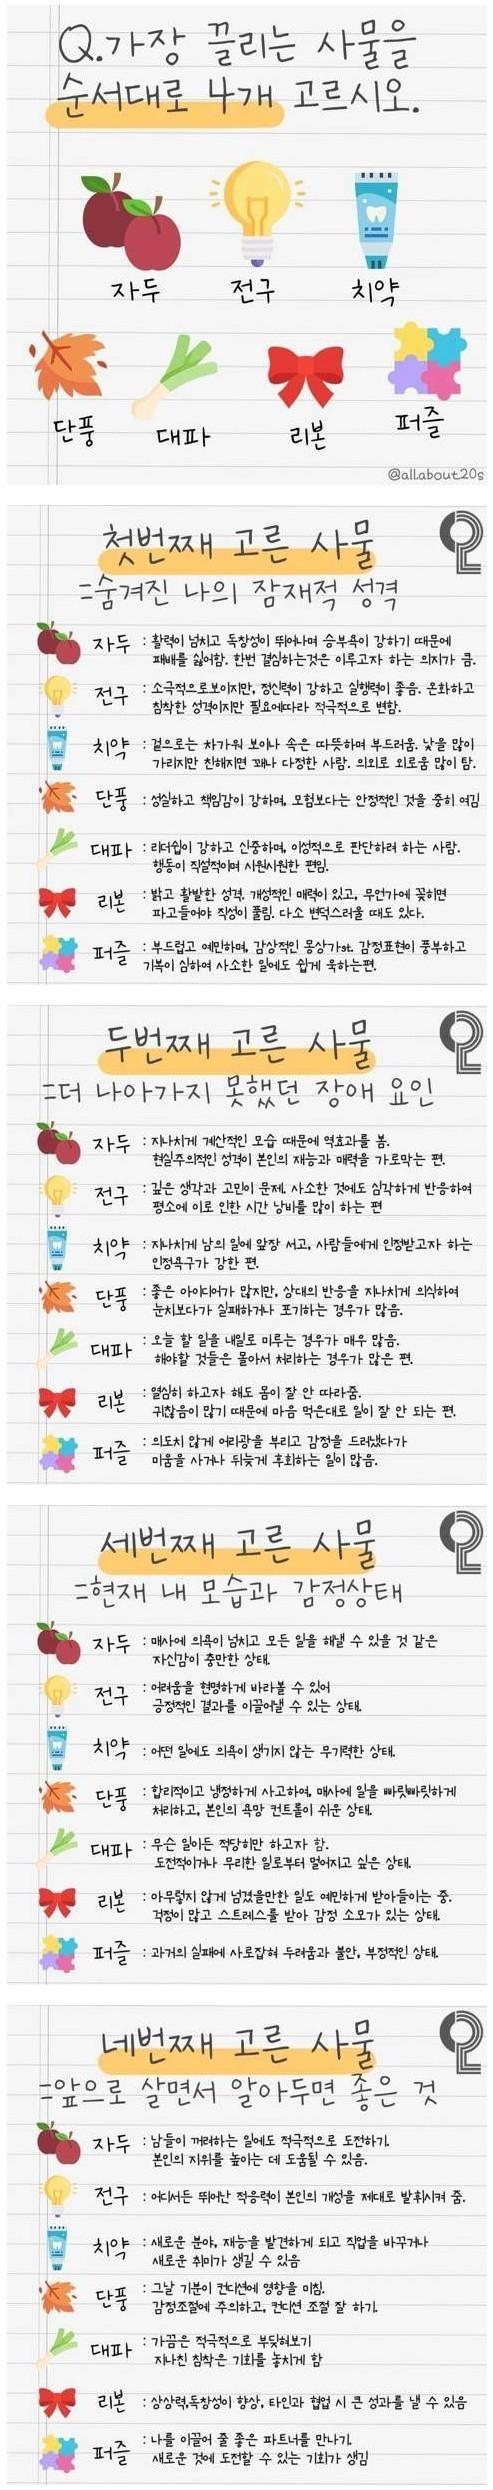 Q.가장 끌리는 사물을
순서대로 4개 고르시오.
자두
전구
치약
단풍
대파
리본
퍼즐
@allabout20s
첫번째 고른 사물
=숨겨진 나의 잠재적 성격
자두 : 활력이 넘치고 독창성이 뛰어나며 승부욕이 강하기 때문에
패배를 싫어함. 한번 결심하는것은 이루고자 하는 의지가 큼.
전구 : 소극적으로보이지만, 정신력이 강하고 실행력이 좋음. 온화하고
침착한 성격이지만 필요에따라 적극적으로 변함.
치약 : 겉으로는 차가워 보이나 속은 따뜻하며 부드러움. 낯을 많이
가리지만 친해지면 꽤나 다정한 사람. 의외로 외로움 많이 탐.
단풍 : 성실하고 책임감이 강하며, 모험보다는 안정적인 것을 중히 여김
대파 : 리더쉽이 강하고 신중하며, 이성적으로 판단하려 하는 사람.
행동이 직설적이며 시원시원한 편임.
리본 : 밝고 활발한 성격. 개성적인 매력이 있고, 무언가에 꽂히면
파고들어야 직성이 풀림. 다소 변덕스러울 때도 있다.
퍼즐 : 부드럽고 예민하며, 감상적인 몽상가st. 감정표현이 풍부하고
기복이 심하여 사소한 일에도 쉽게 욱하는편.
두번째 고른 사물
=더 나아가지 못했던 장애 요인
자두 : 지나치게 계산적인 모습 때문에 역효과를 봄.
현실주의적인 성격이 본인의 재능과 매력을 가로막는 편.
전구 : 깊은 생각과 고민이 문제. 사소한 것에도 심각하게 반응하여
평소에 이로 인한 시간 낭비를 많이 하는 편
치약 : 지나치게 남의 일에 앞장 서고, 사람들에게 인정받고자 하는
인정욕구가 강한 편.
단풍 : 좋은 아이디어가 많지만, 상대의 반응을 지나치게 의식하여
눈치보다가 실패하거나 포기하는 경우가 많음.
대파 : 오늘 할 일을 내일로 미루는 경우가 매우 많음.
해야할 것들은 몰아서 처리하는 경우가 많은 편.
리본 : 열심히 하고자 해도 몸이 잘 안 따라줌.
귀찮음이 많기 때문에 마음 먹은대로 일이 잘 안 되는 편.
퍼즐 : 의도치 않게 어리광을 부리고 감정을 드러냈다가
미움을 사거나 뒤늦게 후회하는 일이 많음.
세번째 고른 사물
=현재 내 모습과 감정상태
자두 : 매사에 의욕이 넘치고 모든 일을 해낼 수 있을 것 같은
자신감이 충만한 상태.
전구 : 어려움을 현명하게 바라볼 수 있어
긍정적인 결과를 이끌어낼 수 있는 상태.
치약 : 어떤 일에도 의욕이 생기지 않는 무기력한 상태.
단풍 : 합리적이고 냉정하게 사고하여, 매사에 일을 빠릿빠릿하게
처리하고, 본인의 욕망 컨트롤이 쉬운 상태.
대파 : 무슨 일이든 적당히만 하고자 함.
도전적이거나 무리한 일로부터 멀어지고 싶은 상태.
리본 : 아무렇지 않게 넘겼을만한 일도 예민하게 받아들이는 중.
걱정이 많고 스트레스를 받아 감정 소모가 있는 상태.
퍼즐 : 과거의 실패에 사로잡혀 두려움과 불안, 부정적인 상태.
네번째 고른 사물
=앞으로 살면서 알아두면 좋은 것
자두 : 남들이 꺼려하는 일에도 적극적으로 도전하기.
본인의 지위를 높이는 데 도움될 수 있음.
전구 : 어디서든 뛰어난 적응력이 본인의 개성을 제대로 발휘시켜 줌.
치약 : 새로운 분야, 재능을 발견하게 되고 직업을 바꾸거나
새로운 취미가 생길 수 있음
단풍 : 그날 기분이 컨디션에 영향을 미침.
감정조절에 주의하고, 컨디션 조절 잘 하기.
대파 : 가끔은 적극적으로 부딪혀보기
지나친 침착은 기회를 놓치게 함
리본 : 상상력,독창성이 향상, 타인과 협업 시 큰 성과를 낼 수 있음
퍼즐 : 나를 이끌어 줄 좋은 파트너를 만나기.
새로운 것에 도전할 수 있는 기회가 생김